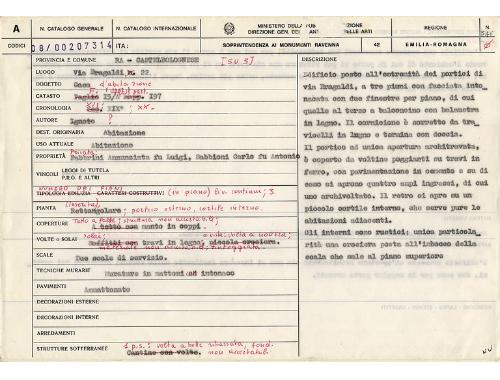 A
N. CATALOGO GENERALE
N. CATALOGO INTERNAZIONALE
MINISTERO DELLA PUBBLICA ISTRUZIONE
DIREZIONE GEN. DELLE ANTICHITÀ E BELLE ARTI
REGIONE
N.
CODICI
08/00207314
ITA:
SOPRINTENDENZA AI MONUMENTI RAVENNA
42
EMILIA-ROMAGNA
PROVINCIA E COMUNE
RA - CASTELBOLOGNESE
[SU 5]
LUOGO
Via Dragaldi n. 22.
OGGETTO
Casa d'abitazione
CATASTO
Foglio 15/ Mapp. 197
CRONOLOGIA
XIX° ; XX.
AUTORE
Ignoto
DEST. ORIGINARIA
Abitazione
USO ATTUALE
Abitazione
PROPRIETÀ
Privata:
Fabbrini Annunziata fu Luigi, Sabbioni Carlo fu Antonio
VINCOLI
LEGGI DI TUTELA
P.R.G. E ALTRI
NUMERO DEI PIANI
TIPOLOGIA EDILIZIA - CARATTERI COSTRUTTIVI
3
PIANTA
Rettangolare; portico esterno, cortile interno.
COPERTURE
A tetto con manto in coppi.
VOLTE o SOLAI
Soffitti con travi in legno, piccola crociera.
SCALE
Due scale di servizio.
TECNICHE MURARIE
Murature in mattoni ad intonaco
PAVIMENTI
Ammattonato
DECORAZIONI ESTERNE
DECORAZIONI INTERNE
ARREDAMENTI
STRUTTURE SOTTERRANEE
1 p.s.: volta a botte ribassata, fond.
Cantine con volte. non accertabili
DESCRIZIONE
Edificio posto all'estremità dei portici di
via Dragaldi, a tre piani con facciata into-
nacata con due finestre per piano, di cui
quella al terzo a balconcino con balaustra
in legno. Il cornicione è corretto da tra-
vicelli in legno e termina con doccia.
Il portico ad unica apertura architravata,
è coperto da voltine poggianti su travi in
ferro, con pavimentazione in cemento e su di
esso si aprono quattro sapi ingressi, di cui
uno archivoltato. Il retro si apre su un
piccolo cortile interno, che serve pure le
abitazioni adiacenti.
Gli interni sono rustici; unica particola
rità una crociera posta all'imbocco della
scala che sale al piano superiore